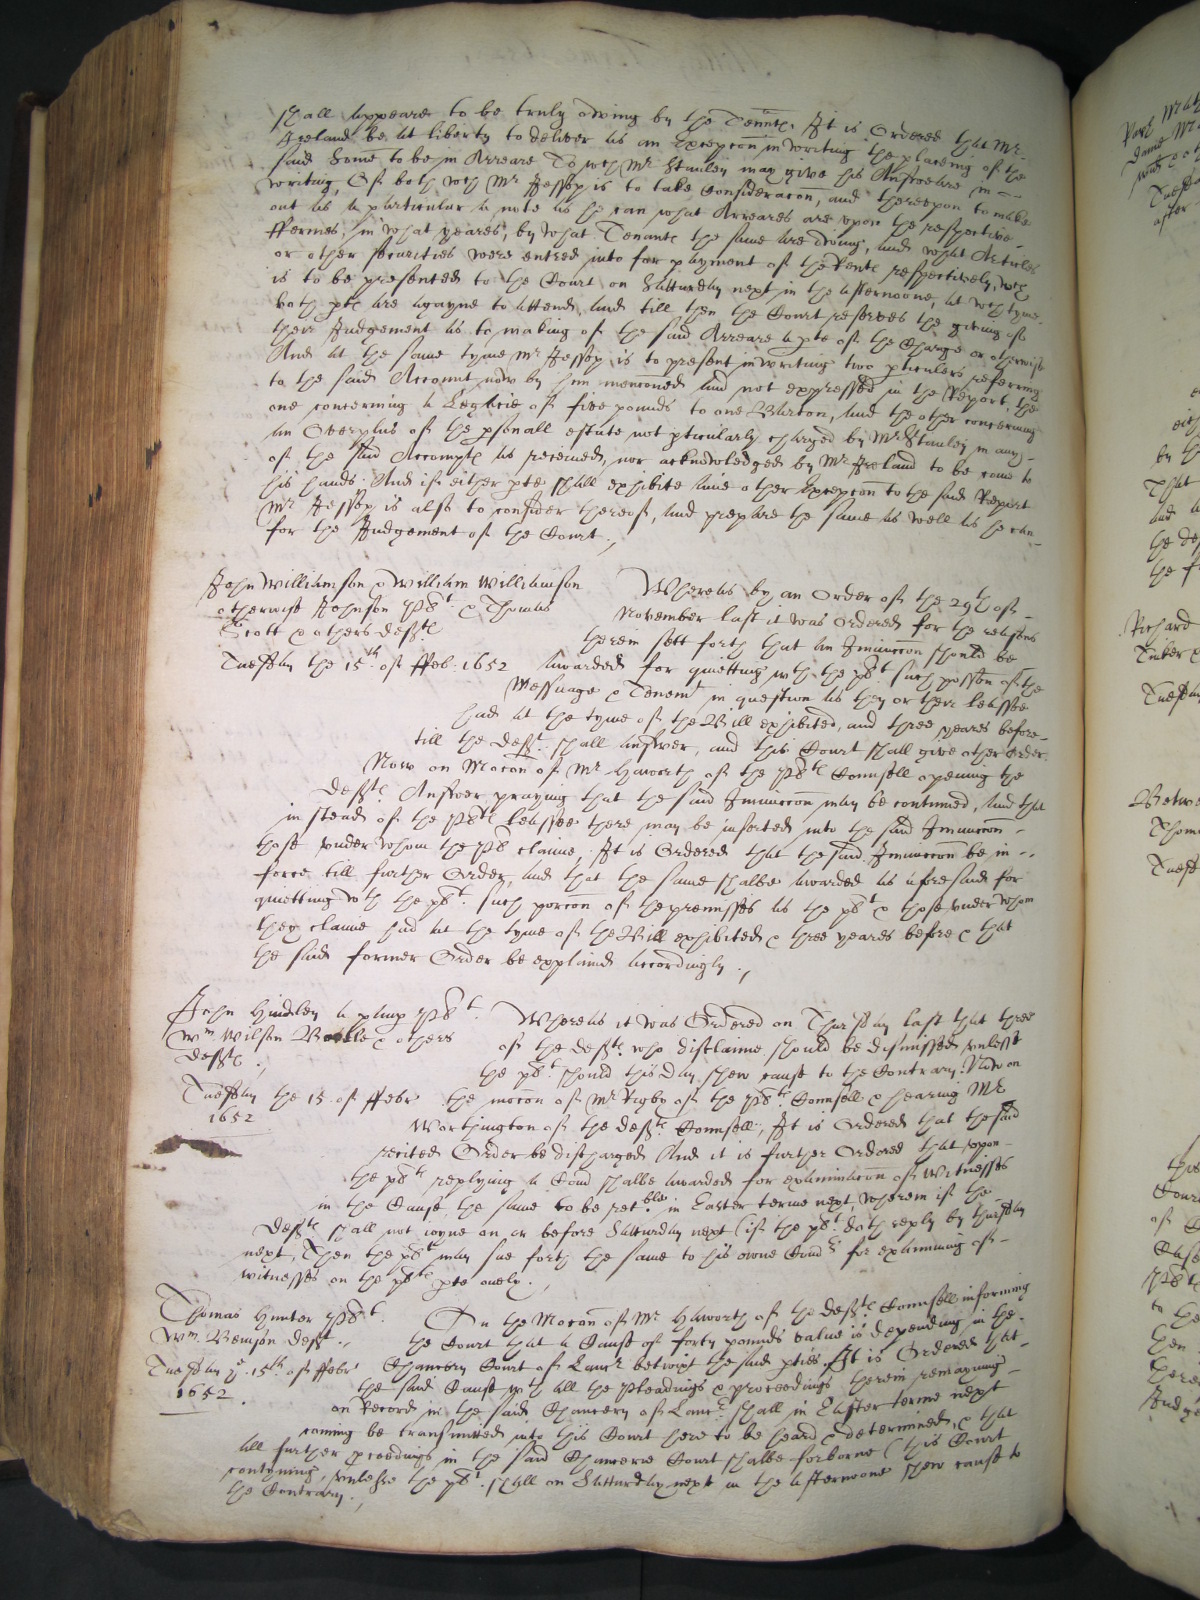 shall appeare to be truly oweing by the Tennte. It is Ordered that Mr.
Ireland be at liberty to deliver us an Excepcon in writing the placeing of the
said Some to be in Arreare To wch Mr. Stanley may give his Answeare in
writing, Of both wch Mr Jessop is to take Consideracon, and thereupon to make
out us a particular a note as he can what Arreares are upon the respective
ffermes, in what yeares, by what Tenante the same are dwing, and what Articles
or other securities were entred into for payment of the Rente respectively, wch
is to be presented to the Court on Satturday next in the afternoone, at wch tyme
both ptes are agayne to attend, and till then the Court reserves the giveing of
their Judgement as to making of the said Arreare a pte of the Charge or otherwise
And at the same tyme Mr Jessop is to present in writing two pticulers referring
to the said Account, now by him menconed and not expressed in the Report, the
one concerning a Legacie of five pounds to one Burton, And the other concerning
an Overplus of the psonall estate not pticularly charged by Mr. Stanley in any
of the said Accompte as received, nor acknowledged by Mr. Ireland to be come to
his hands. And if either pte shall exhibite anie other Excepcon to the said Report
Mr Jessop is also to consider thereof, and prepare the same as well as he can
for the Judgement of the Court.
John Williamson & William Williamson
otherwise Johnson Plt. & Thomas
Scott & others defte
Tuesday the 15th. of ffeb: 1652
Whereas by an Order of the 29th of
November last it was Ordered for the reasons
therein sett forth that an Iniunccon should be
awarded for quietting wth the plt. such possion of the
Messuage & Tenemt in question as they or their leassee
had at the tyme of the Bill exhibited, and three yeares before
till the deft. shall answer, and this Court shall give other Order.
Now on Mocon of Mr. Haworth of the Plte Counsell opening the
defte Answer praying that the said Iniunccon may be continued, And that
in stead of the Plte leassee there may be inserted into the said Iniunccon
those vnder whom the Plt claime, It is Ordered that the said Iniunccon be in
force till further Order, and that the same shalbe awarded as aforesaid for
quietting wth the plt. such porcon of the premisses as the plt & those vnder whom
they claime had at the tyme of the Bill exhibited & three yeares before & that
the said former Order be explained accordingly.
John Hindley Plt.
Wm. Wilson & others
defte.
Tuesday the 15 of ffebr
1652
Whereas it was Ordered on Thursday last that three
of the defte. who disclaime should be dismissed vnlesse
the plt. should this day shew cause to the Contrary. Now on
the mocon of Mr. Rigby of the Plte Counsell & hearing Mr
Worthington of the defte Counsell, It is Ordered that the said
recited Order be discharged And it is further Ordered that vpon
the plte replying a Comd shalbe awarded for examinacon of witnesses
in the Cause, the same to be retble in Easter terme next, wherein if the
defte shall not ioyne on or before Satturday next (if the plt. doth reply by thursday
next, Then the plt may sue forth the same to his owne Comrs for examining of
witnesses on the plte pte onely.
Thomas Hunter Plt.
Wm. Benson deft.
Tuesday ye. 15th. of ffebr
1652
On the Mocon of Mr. Haworth of the defte Counsell informing
the Court that a Cause of forty pounds value is depending in the
Chancery Court of Lancr betwixt the said pties It is Ordered that
the said Cause wth all the Pleadings & proceedings therein remayning
on Record in the said Chancery of Lancr. shall in Easter terme next
coming be transmitted into this Court here to be heard & determined, & that
all further pceedings in the said Chancerie Court shalbe forborne (this Court
contyning, vnlesse the plt. shall on Satturday next in the afternoone shew cause to
the Contrary.